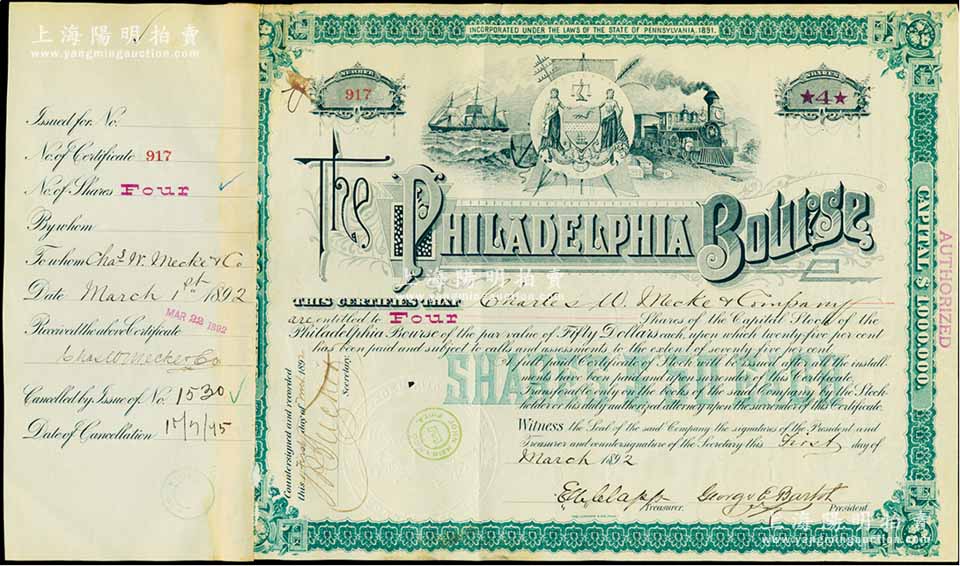 上海陽明拍賣
www.yangmingauction.com
Issued for No.
No. of Certificate 917
No. of Shares Four
By whom
To whom Chas. W. Mecke & Co
Date March 1st 1892
MAR 22 1892
Received the above Certificate
Chas W Mecke & Co
Cancelled by Issue of No. 1530
Date of Cancellation
INCORPORATED UNDER THE LAWS OF THE STATE OF PENNSYLVANIA, 1891.
NUMBER
917
SHARES
★4★
The Philadelphia Bourse
上海陽明拍賣
www.yangmingauction.com
THIS CERTIFIES THAT Charles W. Mecke & Company
are entitled to Four Shares of the Capital Stock of the
Philadelphia Bourse of the par value of Fifty Dollars each, upon which twenty five per cent
has been paid and subject to calls and assessments to the extent of seventy five per cent.
A full paid Certificate of Stock will be issued after all the install-
ments have been paid and upon surrender of this Certificate.
Transferable only on the books of the said Company by the Stock-
holder or his duly authorized attorney upon the surrender of this Certificate.
SHARES $50 EACH
Witness the Seal of the said Company the signatures of the President and
Treasurer and countersignature of the Secretary this First day of
March 1892
Treasurer.
George E. Bartol
President
Countersigned and recorded
this first day of March 1892
Secretary.
CAPITAL $1000000.
AUTHORIZED
上海陽明拍賣
www.yangmingauction.com